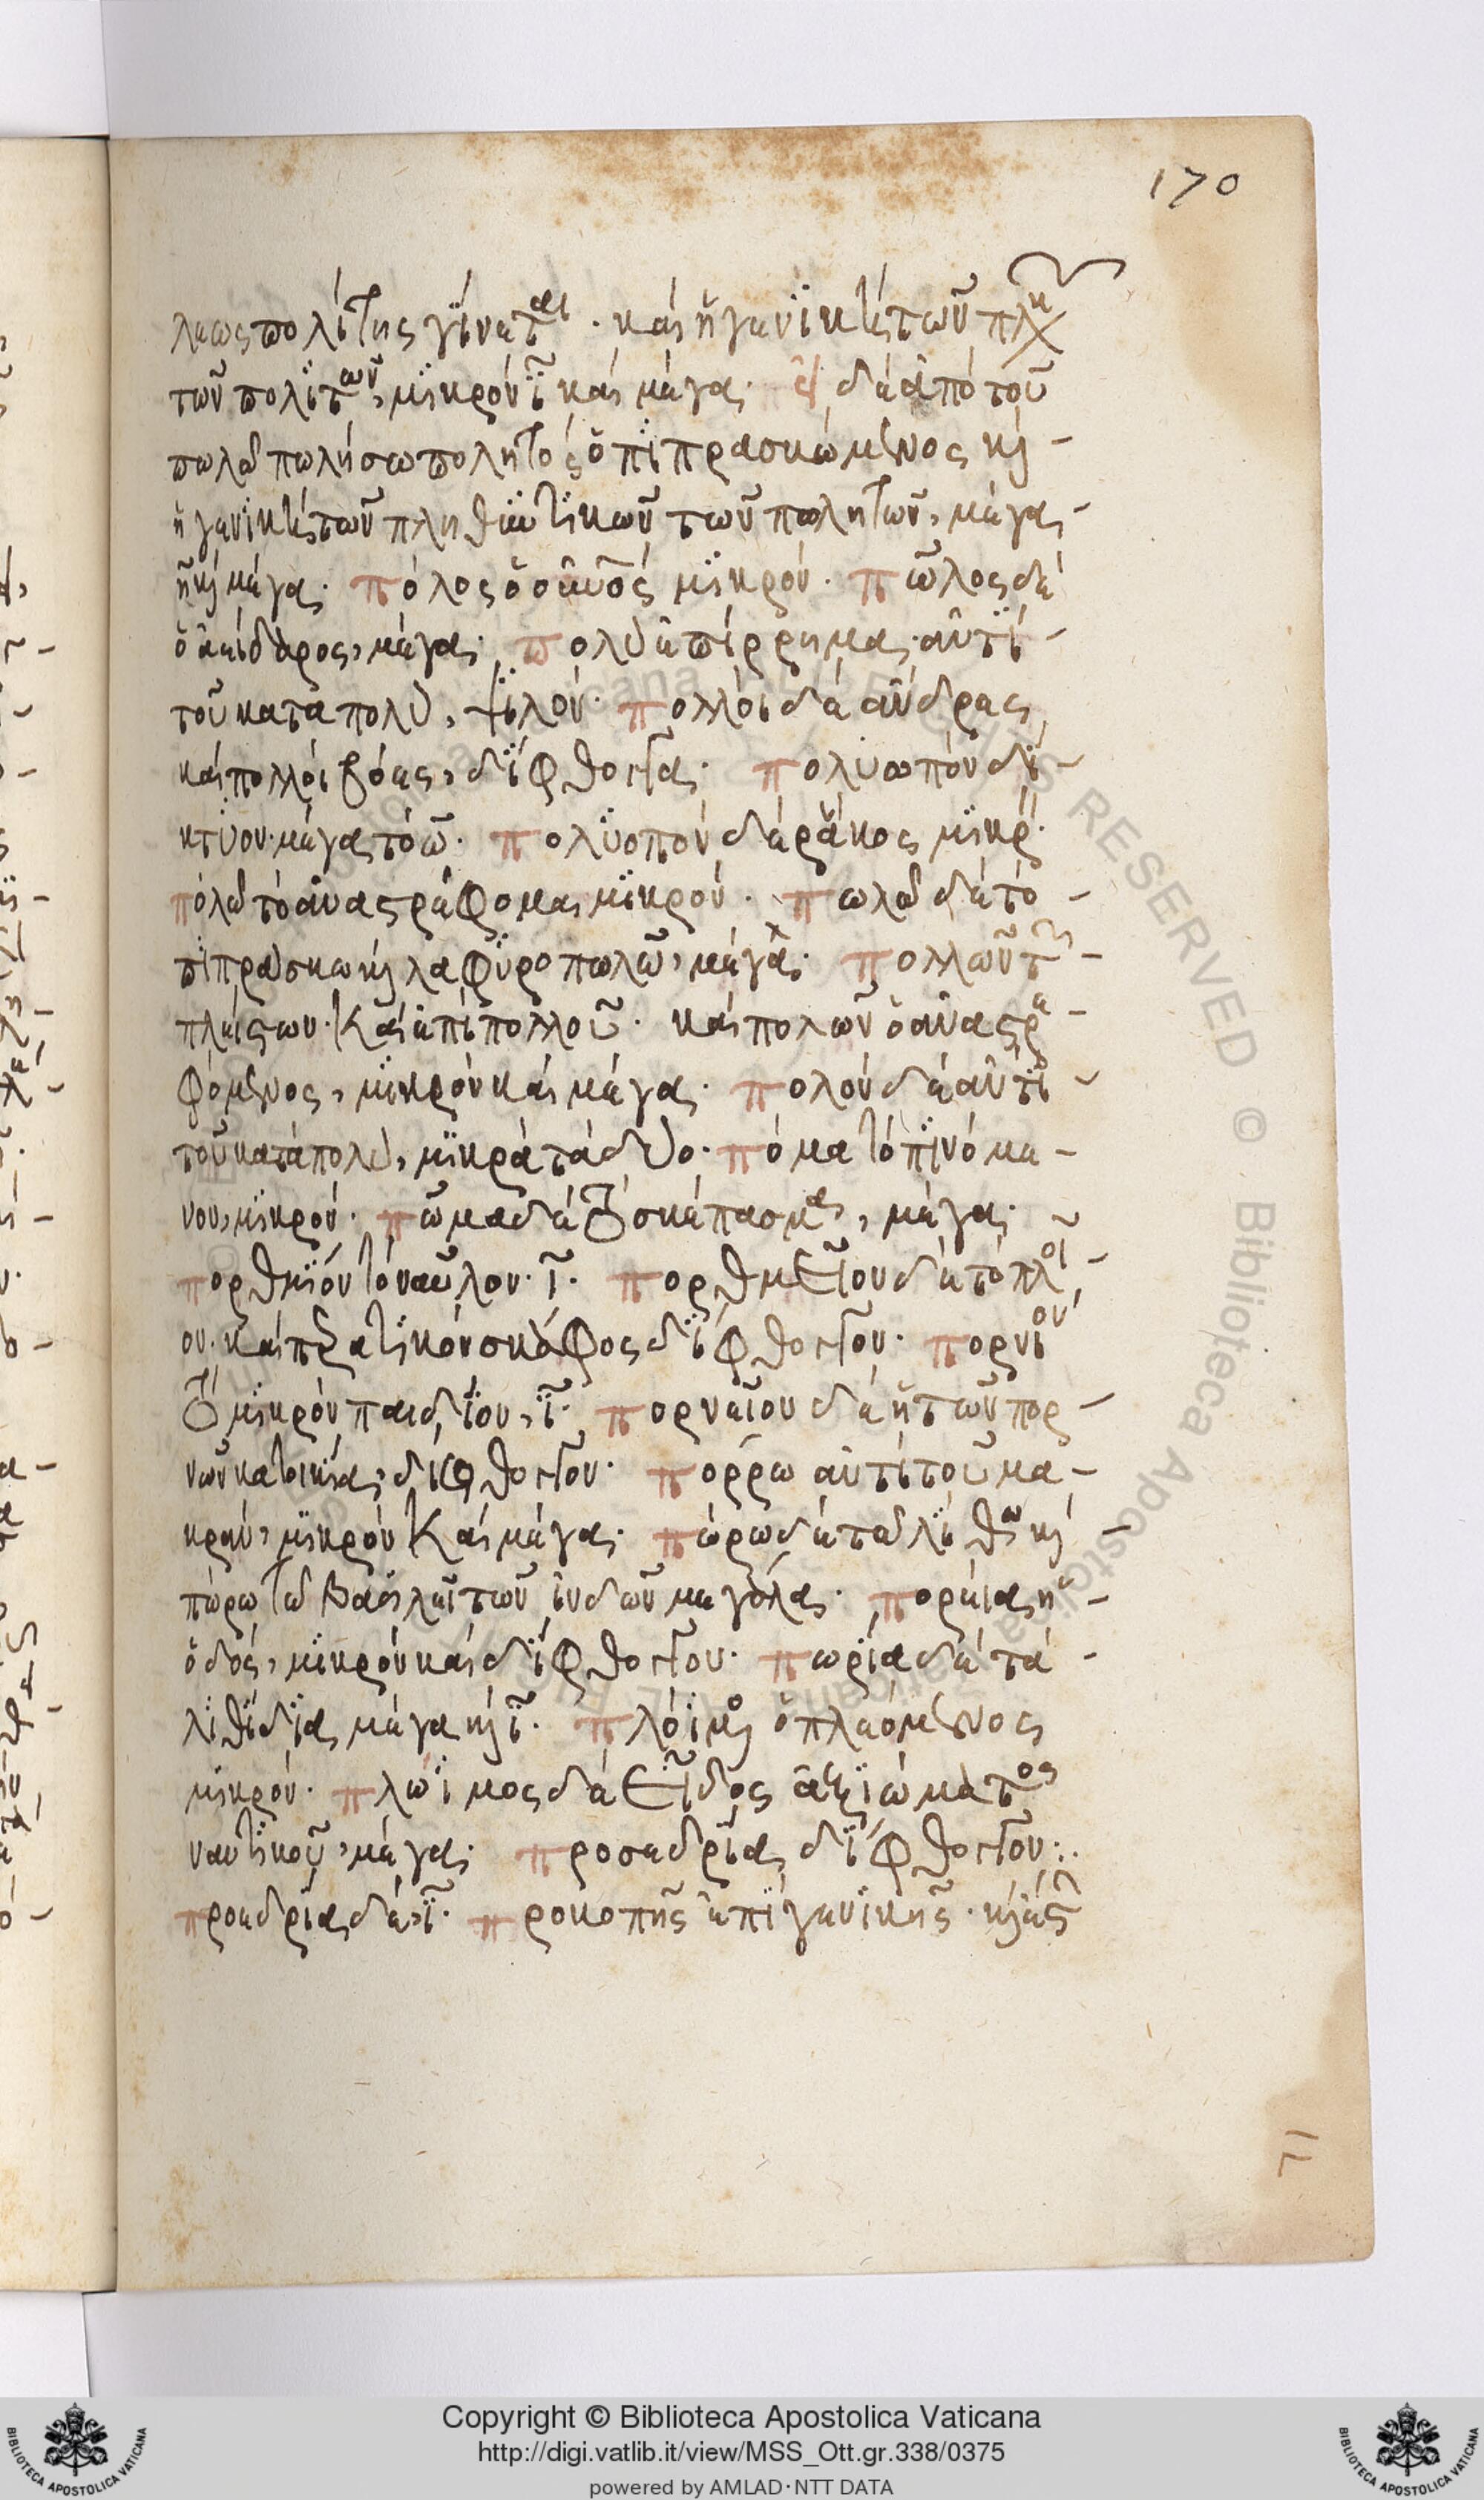 170
λεως πολίτης γίνεται · καὶ ἡ γενικὴ τῶν πλη
τῶν πολιτῶν, μικρὸν ϊ καὶ μέγα· εἰ δὲ ἀπὸ τοῦ
πωλῶ πωλήσω πολητὸς ὁ πιπρασκώμενος κὶ -
ἡ γενικὴ τῶν πληθϊωτικῶν τῶν πωλητῶν, μέγα -
ἦ κὶ μέγα· πόλος ὁ μικρόν · πῶλος δὲ
ὁ μέγα· πολὺ ἐπίρρημα· ἀντὶ -
τοῦ κατὰ πολὺ, ψιλόν· πολλοὶ δὲ ἄνδρες
καὶ πολλοὶ βόες, δίφθογγα· πολυωπὸν δί -
κτυον· μέγα τὸ ω · πολυοπὸν δὲ ῥάκος μικρ·
πολῶ τὸ ἀναστρέφομαι μικρόν · πωλῶ δὲ τὸ -
πιπράσκω κὶ λαφυροπωλῶ, μέγα· πολλῶν τ -
πλείστων· Καὶ ἐπὶ πολλοῦ · καὶ πολῶν ὁ ἀναστρε -
φόμενος, μικρὸν καὶ μέγα · πολοὺν δὲ ἀντὶ -
τοῦ κατὰ πολὺ, μικρὰ τὰ δύο · πόμα τὸ πινόμε -
νον, μικρόν · πῶμα δὲ τὸ σκέπασμα, μέγα·
πορθμϊὸν τὸ ναῦλον · ϊ · πορθμεῖον δὲ τὸ πλοῖ -
ον · καὶ σκάφος δίφθογγον · πορνίον
τὸ μικρὸν παιδίον, ϊ · πορνεῖον δὲ ἡ τῶν πορ -
νῶν κατοικία, δίφθογγον · πόρρω ἀντὶ τοῦ μα -
κρὰν, μικρὸν Καὶ μέγα · πώρω δὲ τῶ λίθω κὶ -
πώρω τῶ βασιλεῖ τῶν ἰνδῶν μεγάλα · πορεία ἡ -
ὁδός, μικρὸν καὶ δίφθογγον · πωρία δὲ τὰ -
λιθίδια, μέγα κὶ ϊ · πλόϊμος ὁ πλεόμενος
μικρόν · πλώϊμος δὲ εἶδος ἀξιώματος
ναυτικοῦ, μέγα · προσεδρία, δίφθογγον :·
προεδρία δὲ, ϊ · προκοπῆς ἐπὶ γενικῆς ·
Π
Copyright © Biblioteca Apostolica Vaticana
http://digi.vatlib.it/view/MSS_Ott.gr.338/0375
powered by AMLAD·NTT DATA
BIBLIOTECA APOSTOLICA VATICANA
BIBLIOTECA APOSTOLICA VATICANA